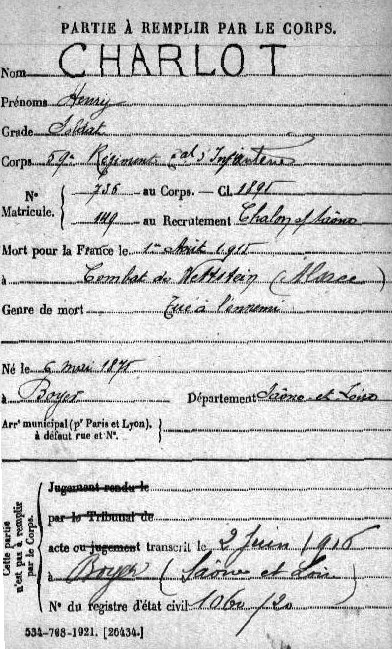 PARTIE À REMPLIR PAR LE CORPS.
Nom CHARLOT
Prénoms Henry
Grade Soldat
Corps 59e Régiment tal d'Infanterie
N° Matricule. 736 au Corps. — Cl. 1895
149 au Recrutement Chalon s/ Saône
Mort pour la France le 1er Août 1915
à Combat de Wettstein (Alsace)
Genre de mort Tué à l'ennemi
Né le 6 mai 1875
à Boyer Département Saône-et-Loire
Arr' municipal (p' Paris et Lyon), à défaut rue et N°.
Cette partie n'est pas à remplir par le Corps.
Jugement rendu le
par le Tribunal de
acte ou jugement transcrit le 2 Juin 1916
à Boyer (Saône et Loire)
N° du registre d'état civil 1060/20
534-708-1921. [26434.]